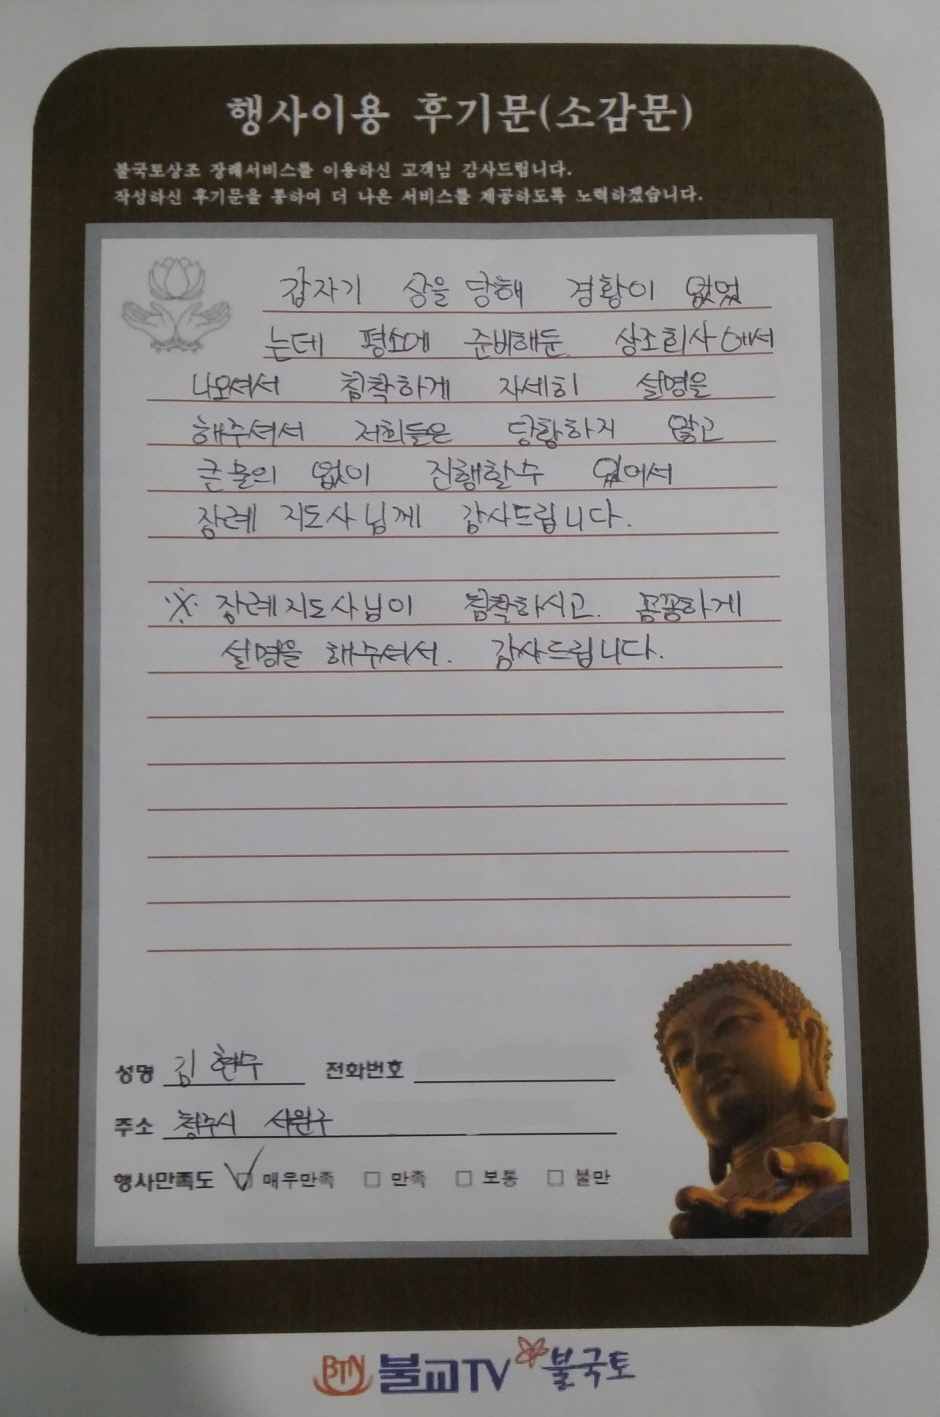 행사이용 후기문(소감문)
불국토상조 장례서비스를 이용하신 고객님 감사드립니다.
작성하신 후기문을 통하여 더 나은 서비스를 제공하도록 노력하겠습니다.
갑자기 상을 당해 경황이 없었
는데 평소에 준비해둔 상조회사에서
나오셔서 침착하게 자세히 설명을
해주셔서 저희들은 당황하지 않고
큰 물의 없이 진행할수 있어서
장례 지도사님께 감사드립니다.
※ 장례지도사님이 침착하시고. 꼼꼼하게
설명을 해주셔서. 감사드립니다.
성명 김현수 전화번호
주소 청주시 서원구
행사만족도 ☑ 매우만족 □ 만족 □ 보통 □ 불만
BTN 불교TV 불국토